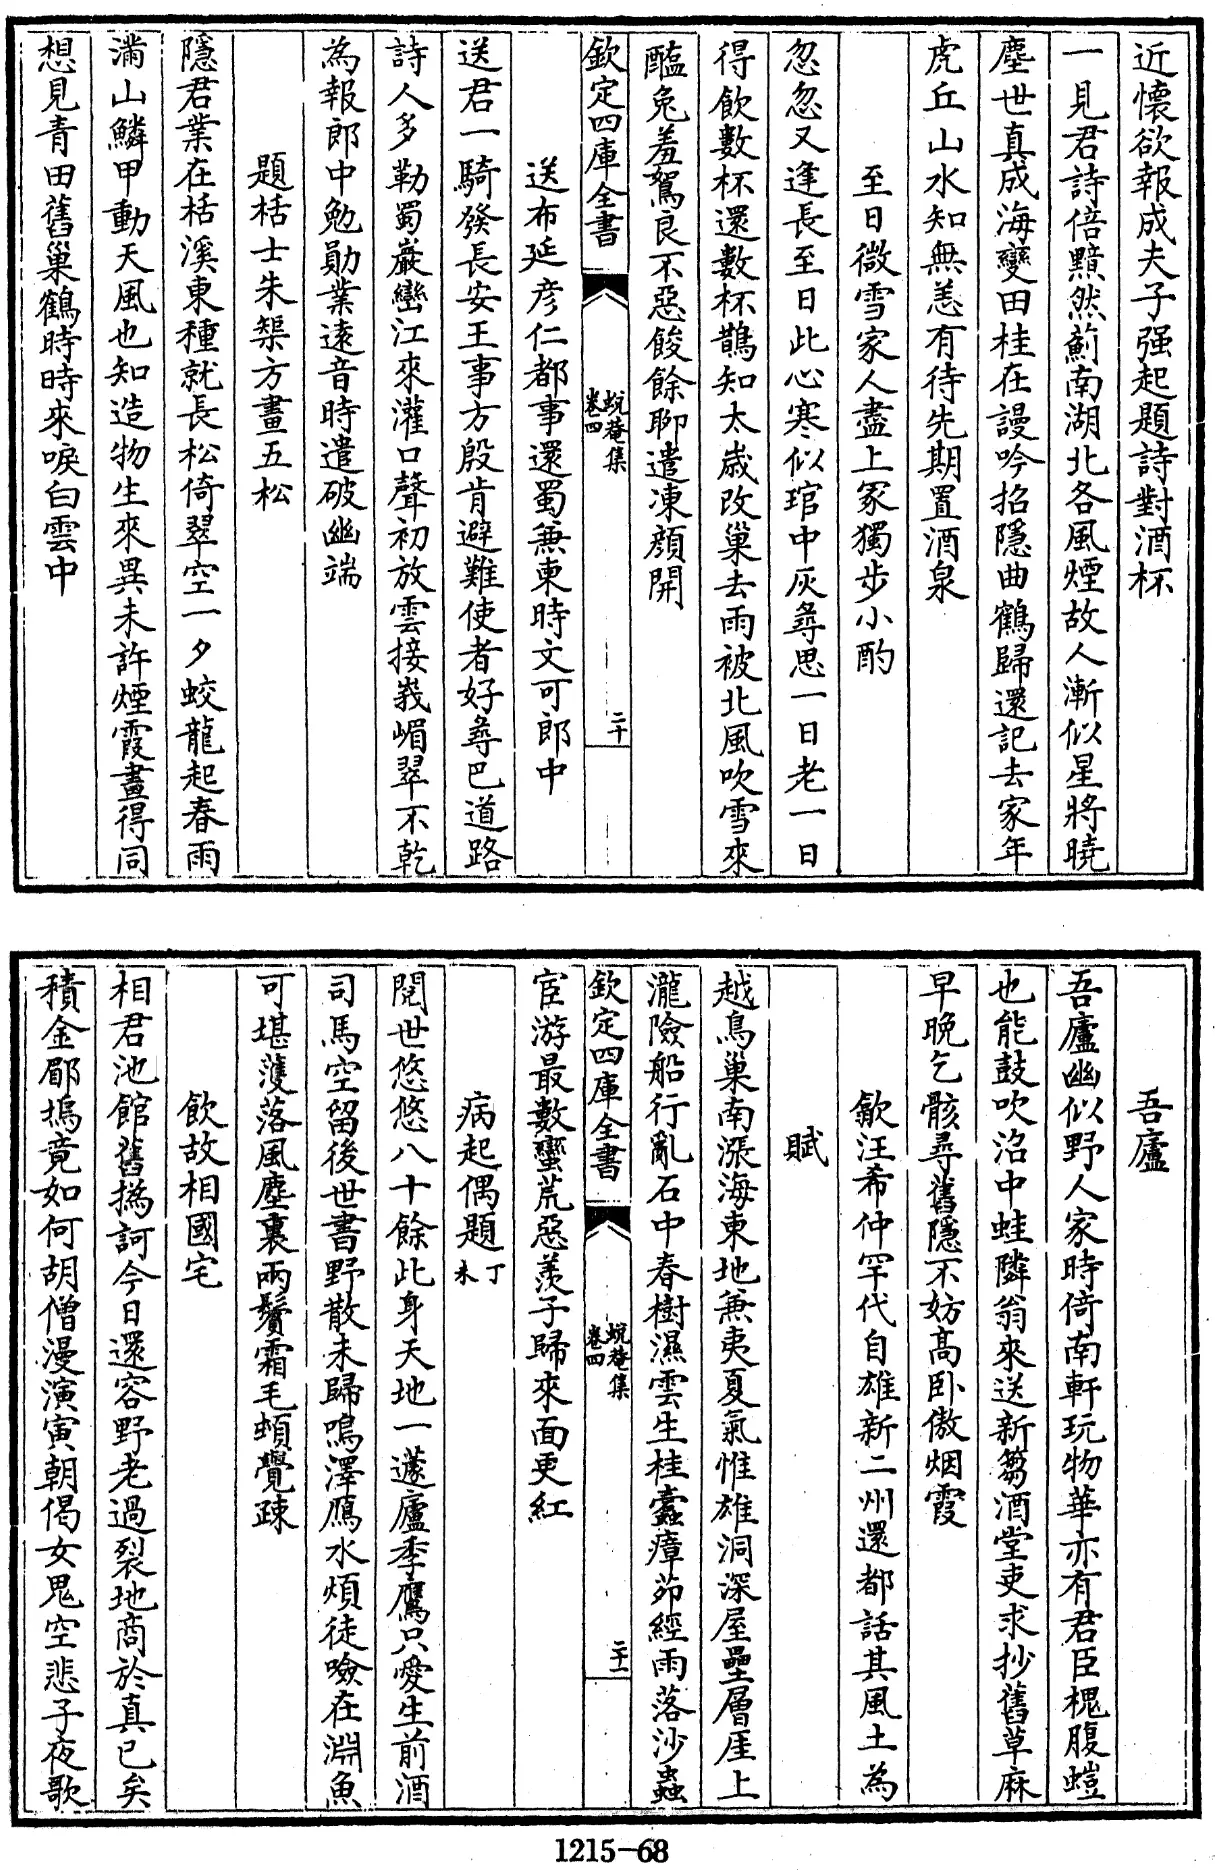 近懷欲報成夫子强起題詩對酒杯
一見君詩倍黯然薊南湖北各風煙故人漸似星將曉
塵世真成海變田桂在謾吟招隱曲鶴歸還記去家年
虎丘山水知無恙有待先期置酒泉
至日微雪家人盡上冢獨步小酌
忽忽又逢長至日此心寒似琯中灰尋思一日老一日
得飲數杯還數杯鵲知太歲改巢去雨被北風吹雪來
醢兔羞鴽良不惡餕餘聊遣凍顔開
欽定四庫全書
蛻菴集
卷四
二十
送布延彦仁都事還蜀兼柬時文可郎中
送君一騎發長安王事方殷肯避難使者好尋巴道路
詩人多勒蜀巖巒江來灌口聲初放雲接峩嵋翠不乾
為報郎中勉勛業逺音時遣破幽端
題栝士朱槼方畫五松
隱君業在栝溪東種就長松倚翠空一夕蛟龍起春雨
滿山鱗甲動天風也知造物生來異未許煙霞畫得同
想見青田舊巢鶴時時來唳白雲中
吾廬
吾廬幽似野人家時倚南軒玩物華亦有君臣槐腹螘
也能鼓吹沼中蛙隣翁來送新蒭酒堂吏求抄舊草麻
早晚乞骸尋舊隱不妨髙臥傲烟霞
歙汪希仲罕代自雄新二州還都話其風土為
賦
越鳥巢南漲海東地兼夷夏氣惟雄洞深屋壘層厓上
瀧險船行亂石中春樹濕雲生桂蠹瘴茆經雨落沙蟲
欽定四庫全書
蛻菴集
卷四
二十一
宦游最數蠻荒惡羨子歸來面更紅
病起偶題丁未
閱世悠悠八十餘此身天地一蘧廬季鷹只愛生前酒
司馬空留後世書野散未歸鳴澤鴈水煩徒噞在淵魚
可堪濩落風塵裏兩鬢霜毛頓覺疎
飲故相國宅
相君池館舊撝訶今日還容野老過裂地商於真已矣
積金郿塢竟如何胡僧漫演寅朝偈女鬼空悲子夜歌
1215-68